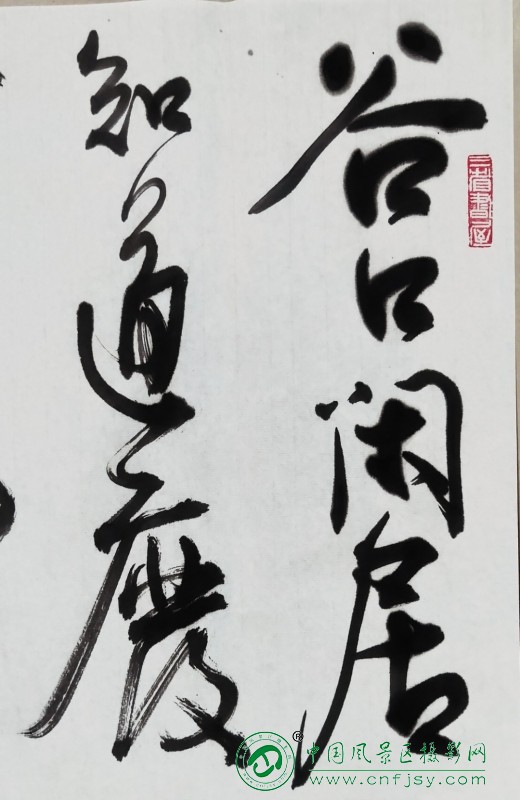 谷口闲居
知道
三省書屋
中国风景区摄影网
www.cnfjsy.com